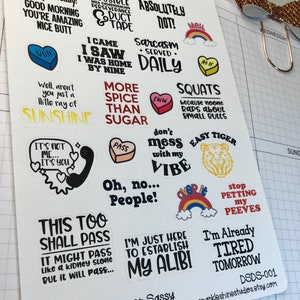 GOOD MORNING
YOU'RE AMAZING
NICE BUTT
DUCT
TAPE
ABSOLUTELY
NOT!
I CAME
I SAW
I WAS HOME
BY NINE
Sarcasm
SERVED
DAILY
Well, aren't
you just a
little ray of
SUNSHINE
MORE
SPICE
THAN
SUGAR
SQUATS
because noone
raps about
small butts
IT'S NOT
ME...
IT'S YOU
PASS
don't
mess
with my
VIBE
EASY TIGER
Oh, no...
People!
stop
PETTING
my
PEEVES
THIS TOO
SHALL PASS
IT MIGHT PASS
like a kidney stone
BUT IT WILL PASS...
I'M JUST HERE
TO ESTABLISH
MY ALIBI
I'm Already
TIRED
TOMORROW
Sassy
DSDS-001